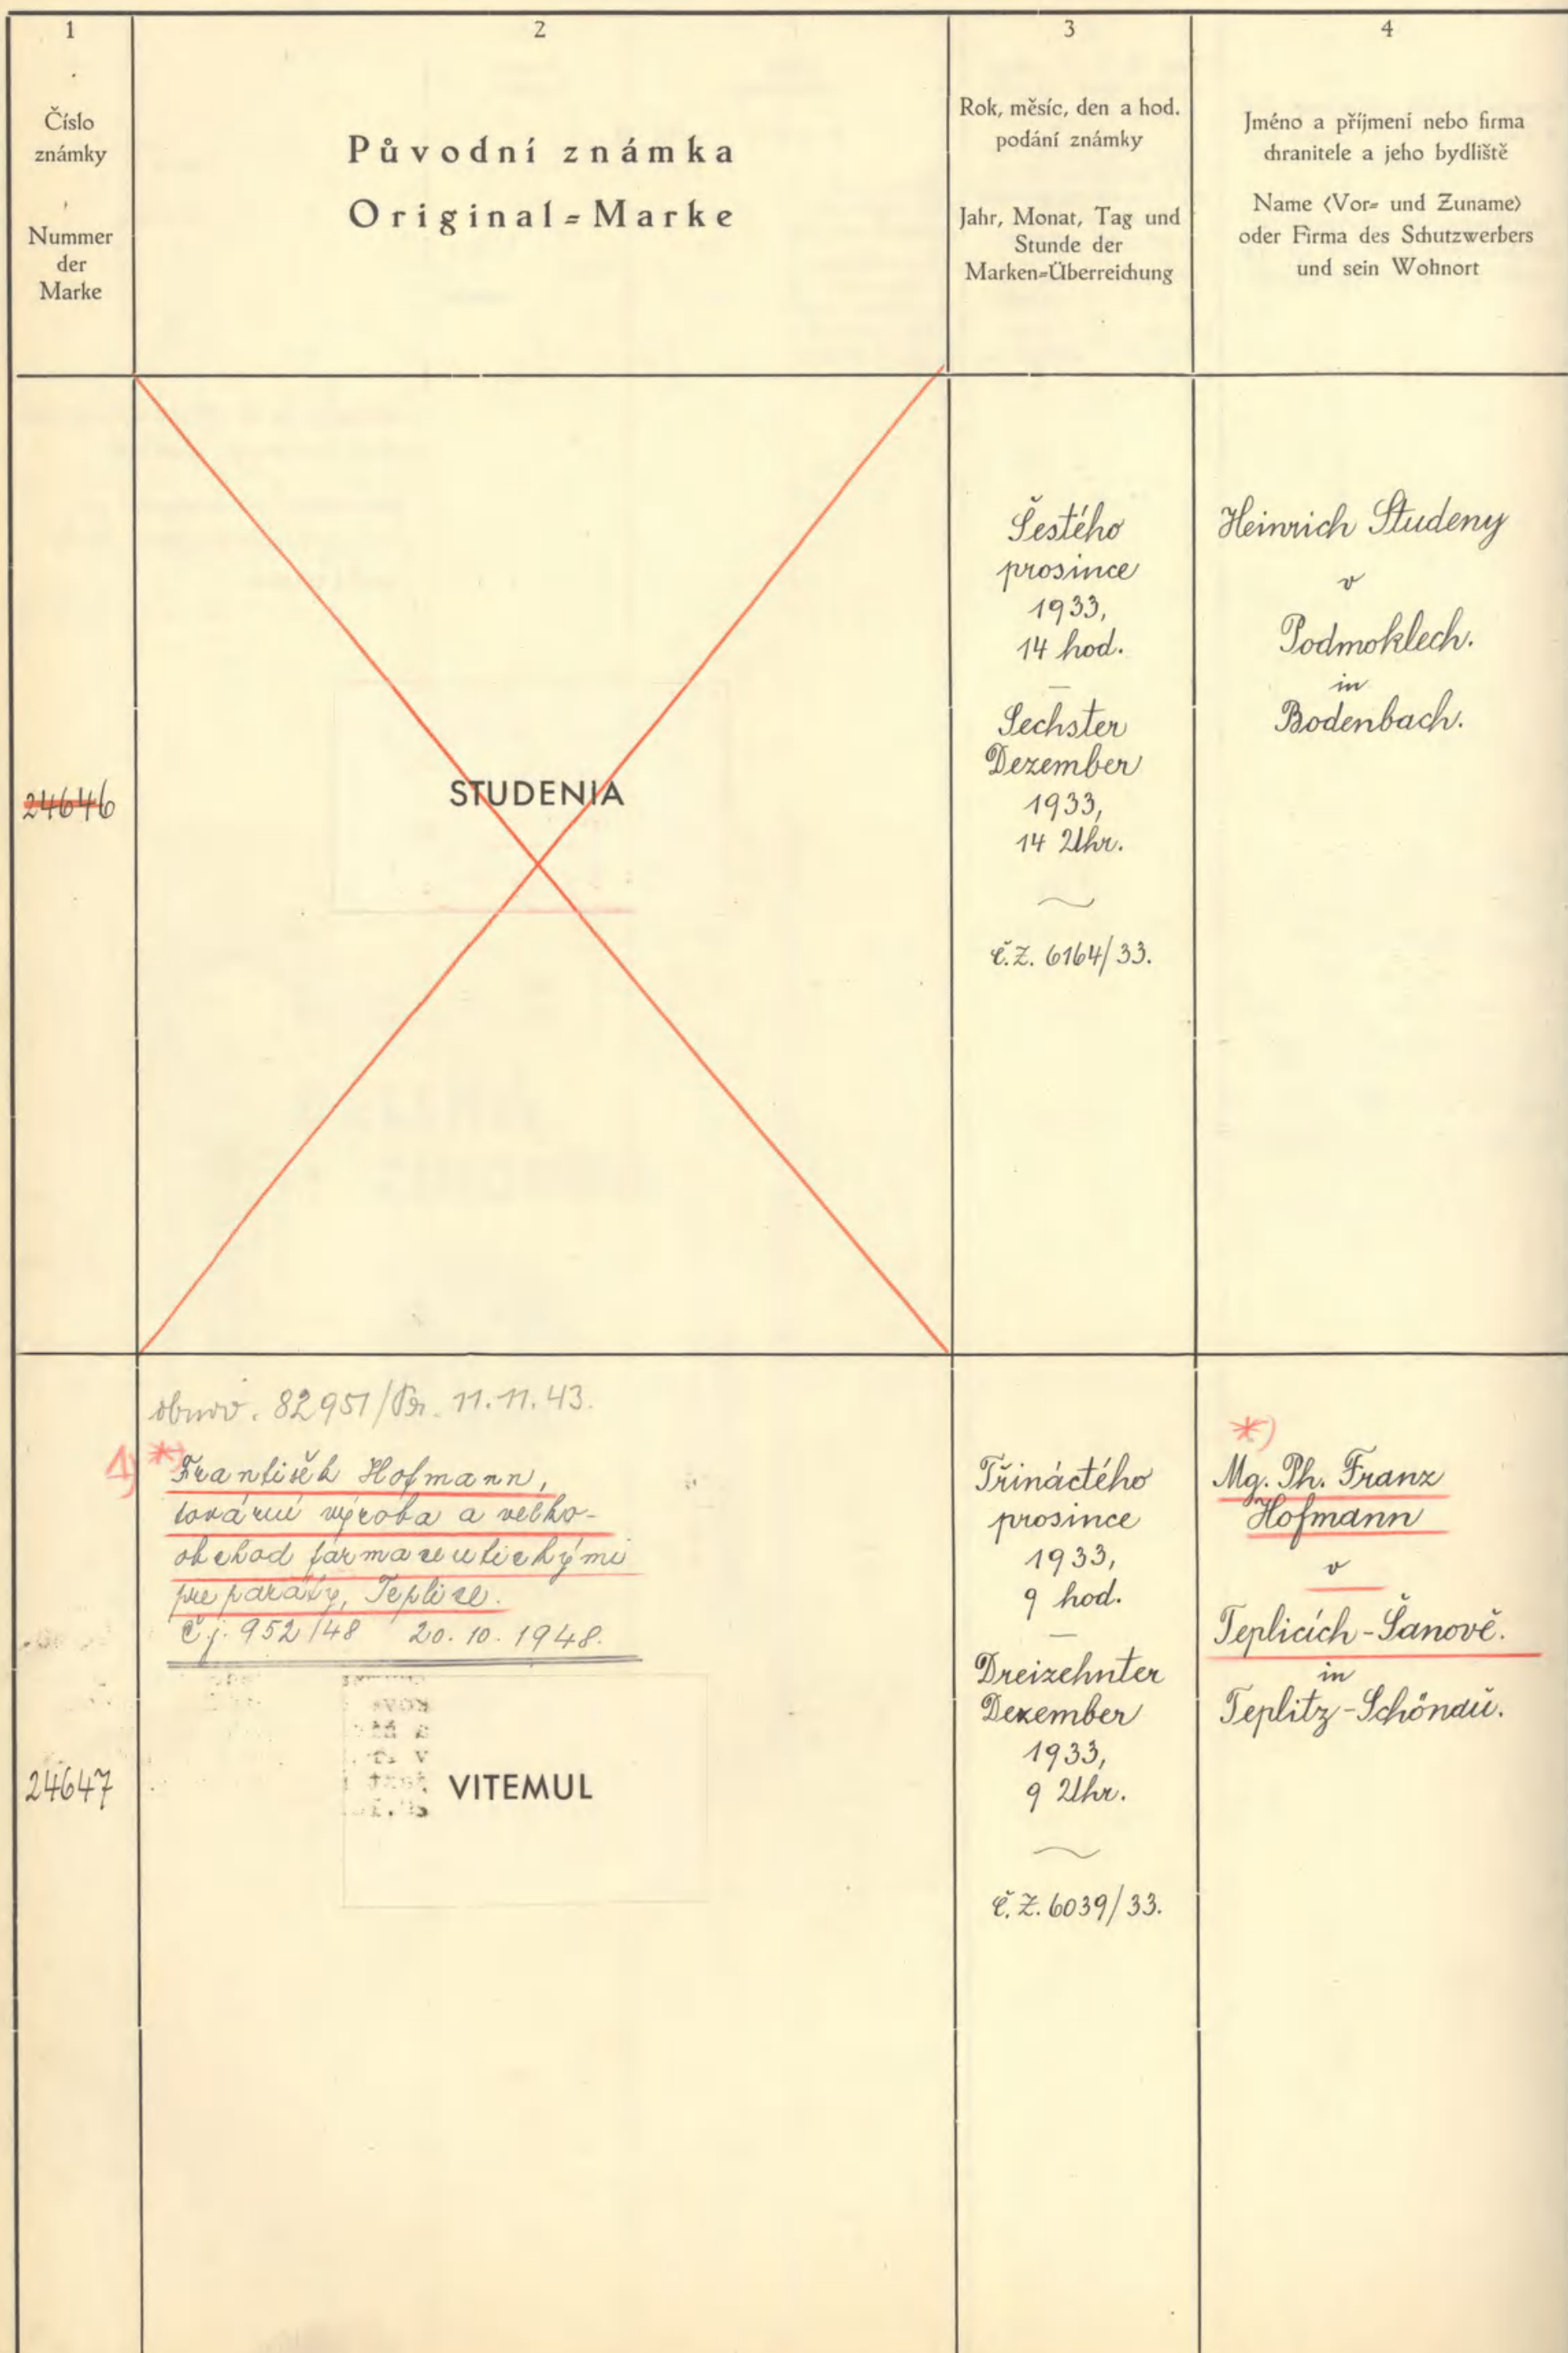 1
Číslo
známky
Nummer
der
Marke
2
Původní známka
Original=Marke
3
Rok, měsíc, den a hod.
podání známky
Jahr, Monat, Tag und
Stunde der
Marken=Überreichung
4
Jméno a příjmení nebo firma
chranitele a jeho bydliště
Name (Vor= und Zuname)
oder Firma des Schutzwerbers
und sein Wohnort
24646
STUDENIA
Šestého
prosince
1933,
14 hod.
—
Sechster
Dezember
1933,
14 Uhr.
Č.Z. 6164/33.
Heinrich Studeny
v
Podmoklech.
in
Bodenbach.
24647
obnov. 82951/Br. 11.11.43.
1) *)
František Hofmann,
tovární výroba a velko-
obchod farmaceutickými
preparáty, Teplice.
Čj. 952/48 20.10.1948.
VITEMUL
Třináctého
prosince
1933,
9 hod.
—
Dreizehnter
Dezember
1933,
9 Uhr.
Č.Z. 6039/33.
*)
Mg. Ph. Franz
Hofmann
v
Teplicích-Šanově.
in
Teplitz-Schönau.